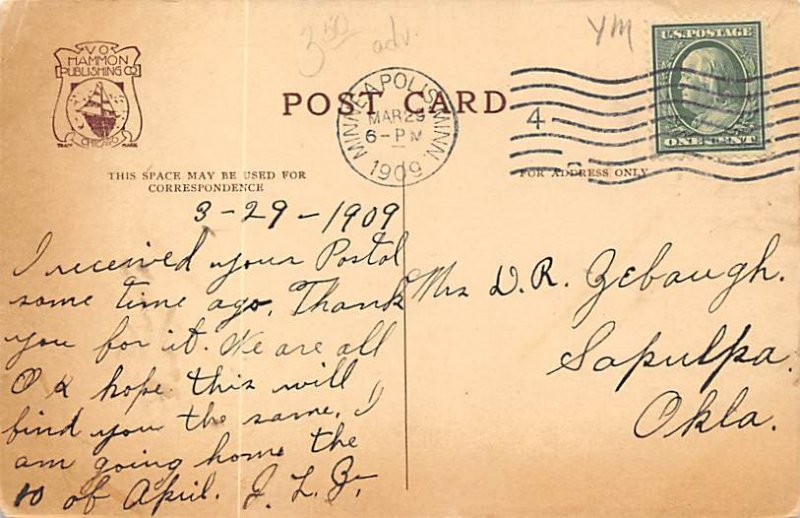 3 50
adv.
YM
V O
HAMMON
PUBLISHING CO
CHICAGO
TRADE MARK
POST CARD
MINNEAPOLIS, MINN.
MAR 29
6-PM
1909
4
U.S. POSTAGE
ONE CENT
THIS SPACE MAY BE USED FOR
CORRESPONDENCE
FOR ADDRESS ONLY
3-29-1909
I received your Postal
some time ago. Thank
you for it. We are all
O K hope this will
find you the same. I
am going home the
10 of April. J. L. Z.
Mrs D. R. Zebaugh.
Sapulpa.
Okla.